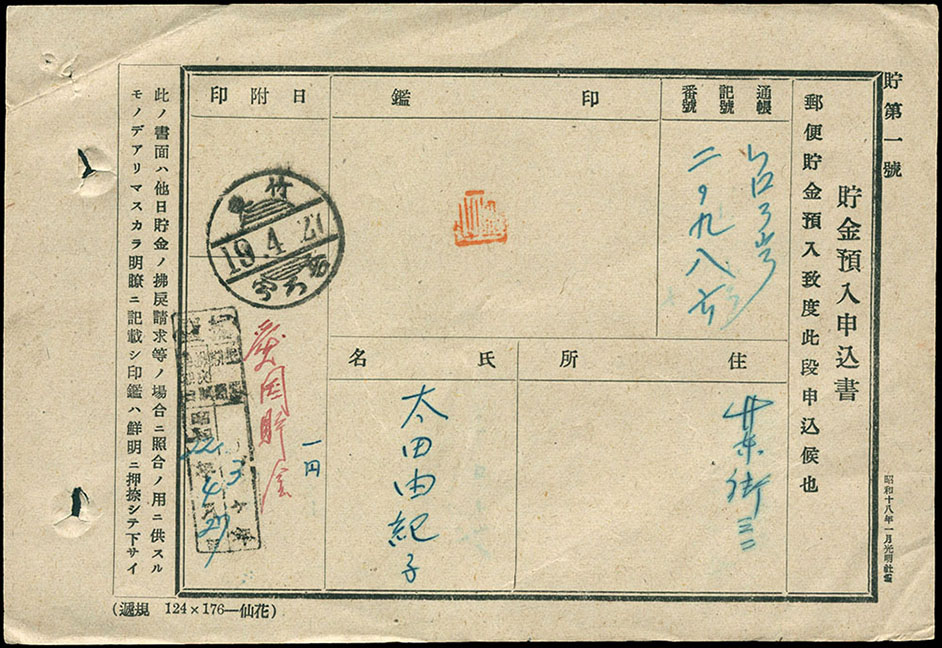 貯第一號
貯金預入申込書
郵便貯金預入致度此段申込候也
昭和十八年一月光明社
通帳
記號
番號
二九八六
印鑑
日附印
竹
19.4.27
住所
氏名
太田由紀子
愛国貯金
一円
此ノ書面ハ他日貯金ノ拂戻請求等ノ場合ニ照合ノ用ニ供スル
モノデアリマスカラ明瞭ニ記載シ印鑑ハ鮮明ニ押捺シテ下サイ
(遞規 124×176—仙花)